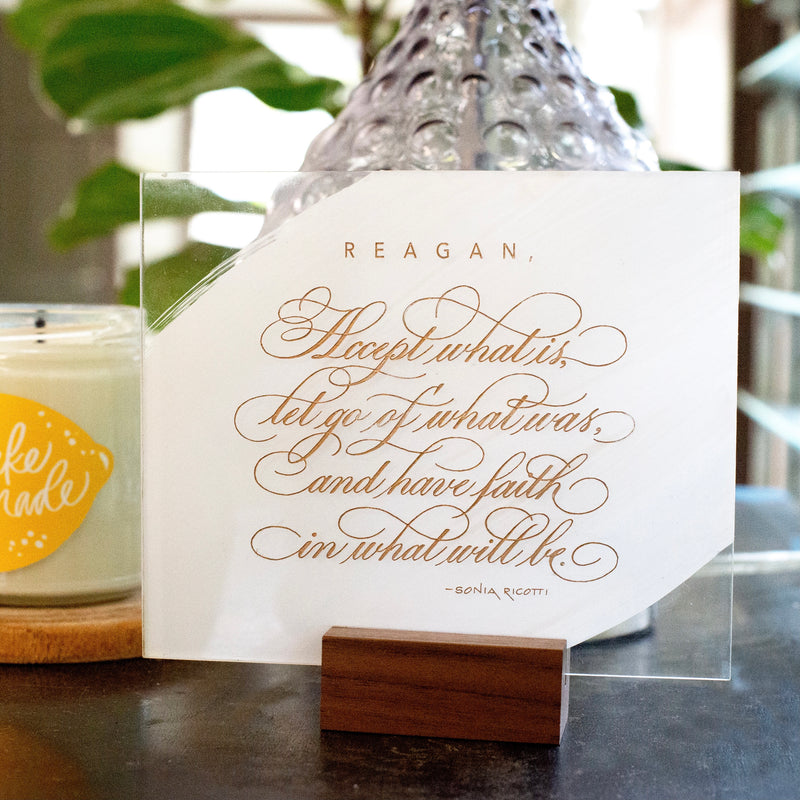 REAGAN,
Accept what is,
let go of what was,
and have faith
in what will be.
-SONIA RICOTTI